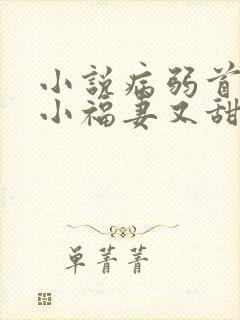 小说病弱首
小福妻又甜
单菁菁